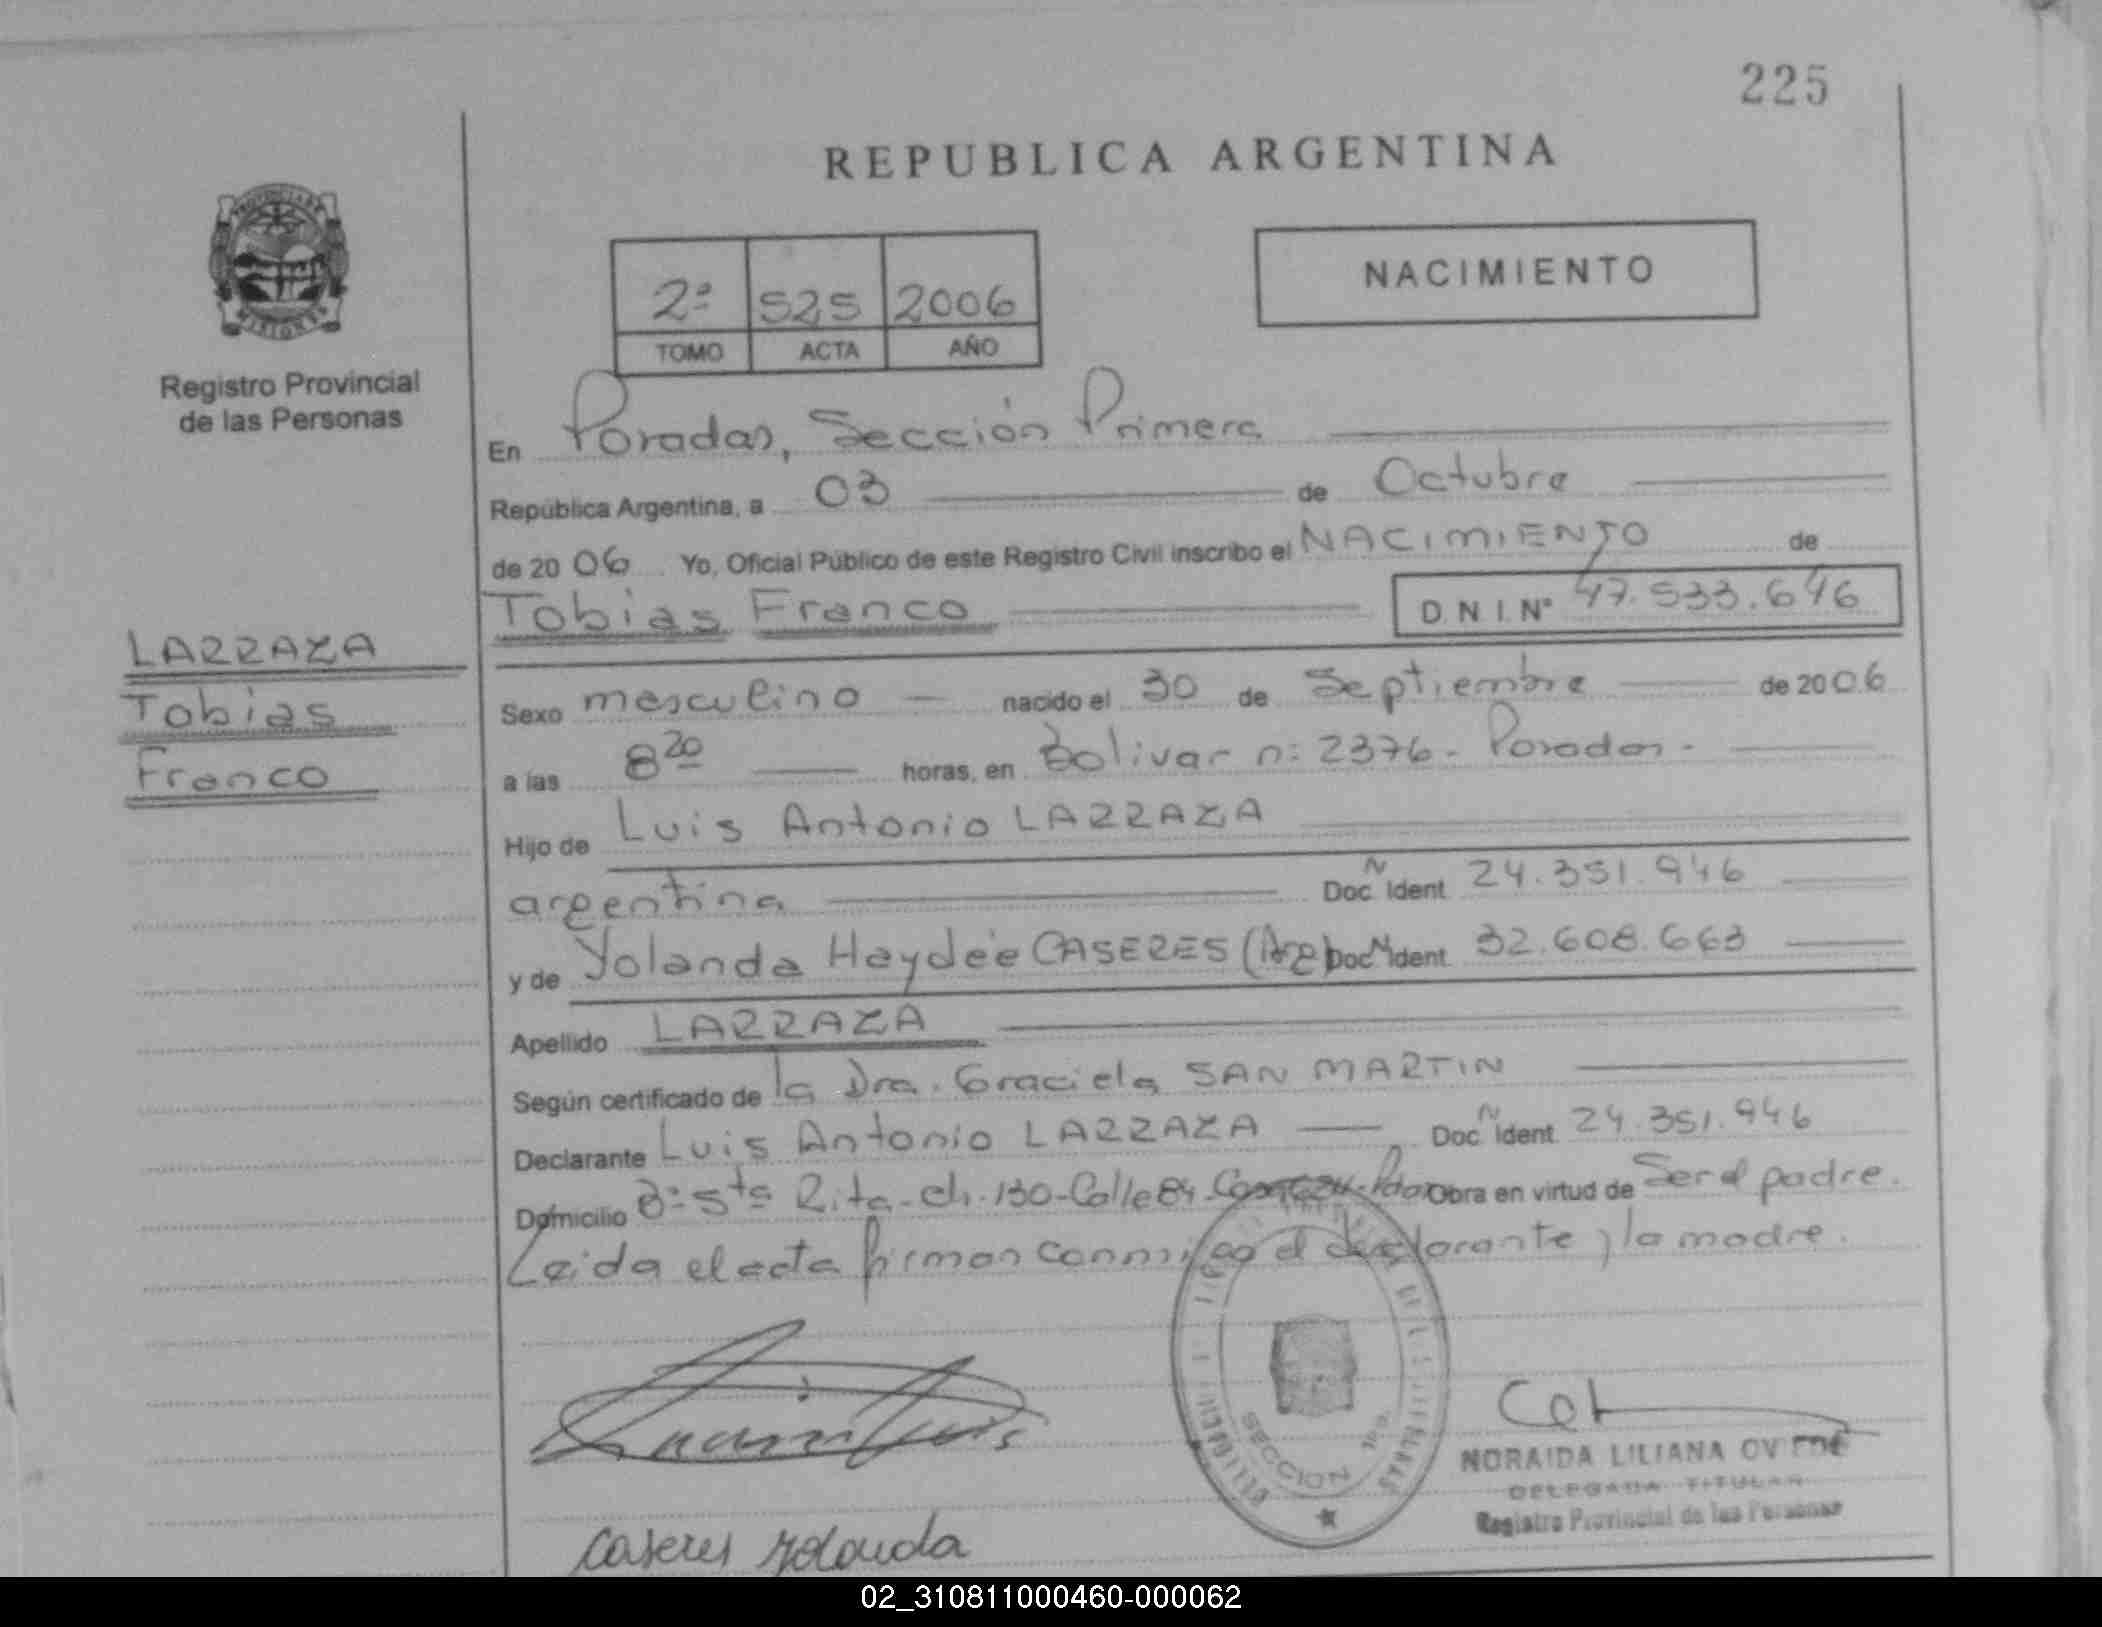 225
REPUBLICA ARGENTINA
PROVINCIA DE
MISIONES
Registro Provincial
de las Personas
2ª 525 2006
TOMO ACTA AÑO
NACIMIENTO
En Posadas, Sección Primera
República Argentina, a 03 de Octubre
de 2006 Yo, Oficial Público de este Registro Civil inscribo el NACIMIENTO de
Tobias Franco D.N.I. Nº 47.533.646
LARRAZA
Tobias
Franco
Sexo masculino nacido el 30 de Septiembre de 2006
a las 8 20 horas, en Bolivar n: 2376 - Posadas -
Hijo de Luis Antonio LARRAZA
argentina Doc. N Ident. 24.351.946
y de Yolanda Haydée CASERES (Arg) Doc. N Ident. 32.608.663
Apellido LARRAZA
Según certificado de la Dra. Graciela SAN MARTIN
Declarante Luis Antonio LARRAZA Doc. N Ident. 24.351.946
Domicilio Bº Sta Rita - Ch. 130 - Calle 84 Obra en virtud de Ser el padre.
Leida el acta firman conmigo el declarante y la madre.
SECCION 1ra.
NORAIDA LILIANA
DELEGADA TITULAR
Registro Provincial de las Personas
Caseres Yolanda
02_310811000460-000062